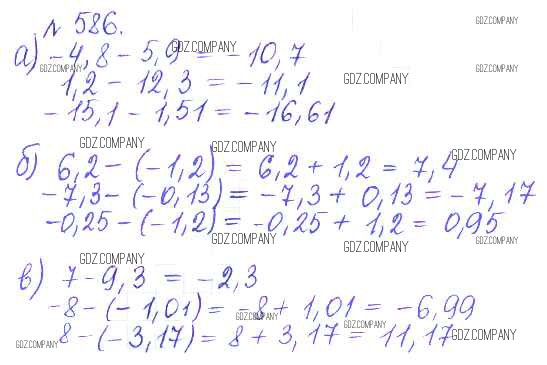 № 586. GDZ.COMPANY
а) -4,8 - 5,9 = -10,7 GDZ.COMPANY GDZ.COMPANY GDZ.COMPANY
1,2 - 12,3 = -11,1 GDZ.COMPANY
-15,1 - 1,51 = -16,61
GDZ.COMPANY GDZ.COMPANY GDZ.COMPANY
б) 6,2 - (-1,2) = 6,2 + 1,2 = 7,4
-7,3 - (-0,13) = -7,3 + 0,13 = -7,17
-0,25 - (-1,2) = -0,25 + 1,2 = 0,95
GDZ.COMPANY GDZ.COMPANY GDZ.COMPANY
GDZ.COMPANY
в) 7 - 9,3 = -2,3
-8 - (-1,01) = -8 + 1,01 = -6,99
GDZ.COMPANY GDZ.COMPANY
8 - (-3,17) = 8 + 3,17 = 11,17
GDZ.COMPANY GDZ.COMPANY